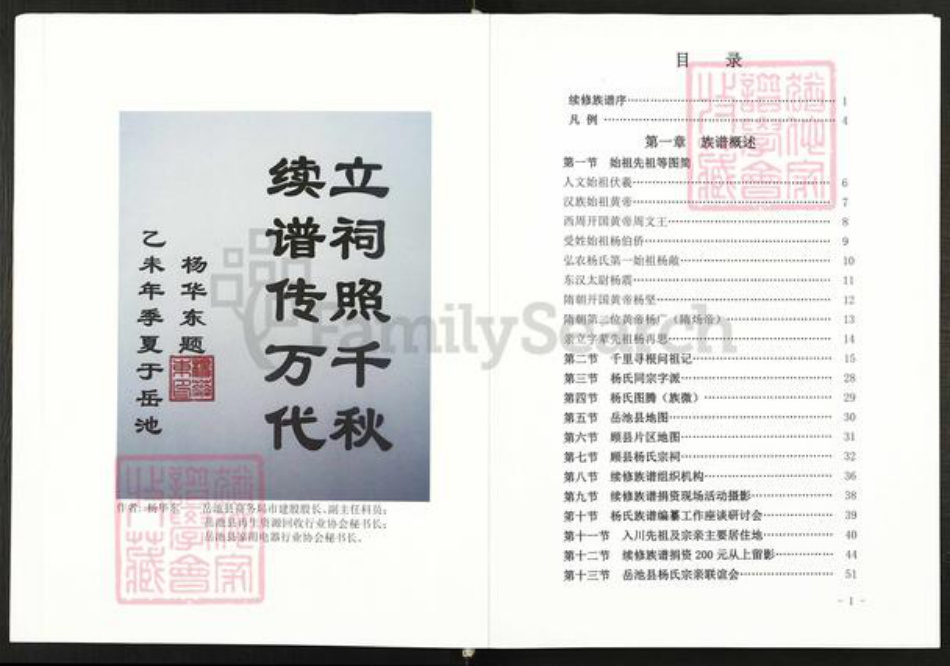 立祠照千秋
续谱传万代
杨华东题
乙未年季夏于岳池
作者：杨华东 岳池县商务局市建股股长、副主任科员；
岳池县再生资源回收行业协会秘书长；
岳池县家用电器行业协会秘书长。
FamilySearch
目 录
续修族谱序 1
凡 例 4
第一章 族谱概述
第一节 始祖先祖等图简
人文始祖伏羲 6
汉族始祖黄帝 7
西周开国黄帝周文王 8
受姓始祖杨伯侨 9
弘农杨氏第一始祖杨敞 10
东汉太尉杨震 11
隋朝开国黄帝杨坚 12
隋朝第二位黄帝杨广（隋炀帝） 13
亲立字辈先祖杨再思 14
第二节 千里寻根问祖记 15
第三节 杨氏同宗字派 28
第四节 杨氏图腾（族微） 29
第五节 岳池县地图 30
第六节 顾县片区地图 31
第七节 顾县杨氏宗祠 32
第八节 续修族谱组织机构 36
第九节 续修族谱捐资现场活动摄影 38
第十节 杨氏族谱编纂工作座谈研讨会 39
第十一节 入川先祖及宗亲主要居住地 40
第十二节 续修族谱捐资 200 元从上留影 44
第十三节 岳池县杨氏宗亲联谊会 51
- 1 -